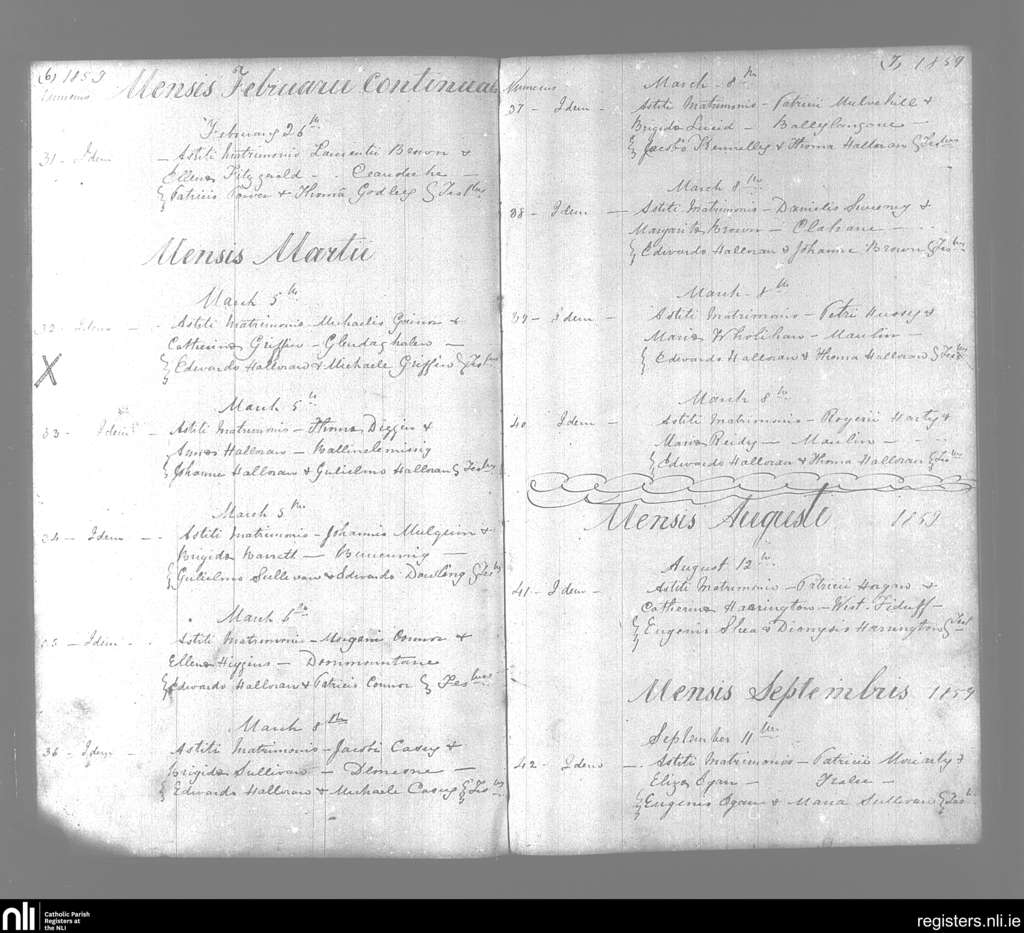 (6) 1859
Mensis Februarii Continuat
Numerus
February 26th
31 - Idem - Astiti Matrimonio Laurentii Brown &
Ellenæ Fitzgerald -
Patricio Power & Thomâ Godley } Testibus
Mensis Martii
March 5th
32 - Idem - Astiti Matrimonio - Michaelis &
Catherinæ Griffin - Glendaghalan -
X
Edwardo Halloran & Michaele Griffin } Testibus
March 5th
33 - Idem - Astiti Matrimonio - Thomæ Diggin &
Annæ Halloran - Ballinclemissig
Johanne Halloran & Gulielmo Halloran } Testibus
March 5th
34 - Idem - Astiti Matrimonio - Johannis Mulquin &
Brigidæ Barrett -
Gulielmo Sullivan & Edwardo Dowling } Testibus
March 6th
35 - Idem - Astiti Matrimonio - Connor &
Ellenæ Higgins - Dommountane
Edwardo Halloran & Patricio Connor } Testibus
March 8th
36 - Idem - Astiti Matrimonio - Jacobi Casey &
Brigidæ Sullivan -
Edwardo Halloran & Michaele Casey } Testibus
(7) 1859
Numerus
March 8th
37 - Idem - Astiti Matrimonio - Patricii Mulvehill &
Brigidæ Lucid - Ballylongane -
Jacobo Kennelly & Thoma Halloran } Testibus
March 8th
38 - Idem - Astiti Matrimonio - Danielis Sweeney &
Margaritæ Brown - Clahane -
Edwardo Halloran & Johanne Brown } Testibus
March 8th
39 - Idem - Astiti Matrimonio - Petri Hussey &
Mariæ Wholihan - Maulin -
Edwardo Halloran & Thoma Halloran } Testibus
March 8th
40 Idem - Astiti Matrimonio - Rogerii Harty &
Mariæ Reidy - Maulin -
Edwardo Halloran & Thoma Halloran } Testibus
Mensis Augusti 1859
August 12th
41 - Idem - Astiti Matrimonio - Patricii Horgan &
Catherinæ Harrington - West Feduff -
Eugenio Shea & Dionysio Harrington } Test
Mensis Septembris 1859
September 11th
42 - Idem - Astiti Matrimonio - Patricii Moriarty &
Elizæ Egan - Tralee -
Eugenio Egan & Maria Sullivan } Testib
nli
Catholic Parish
Registers at
the NLI
registers.nli.ie